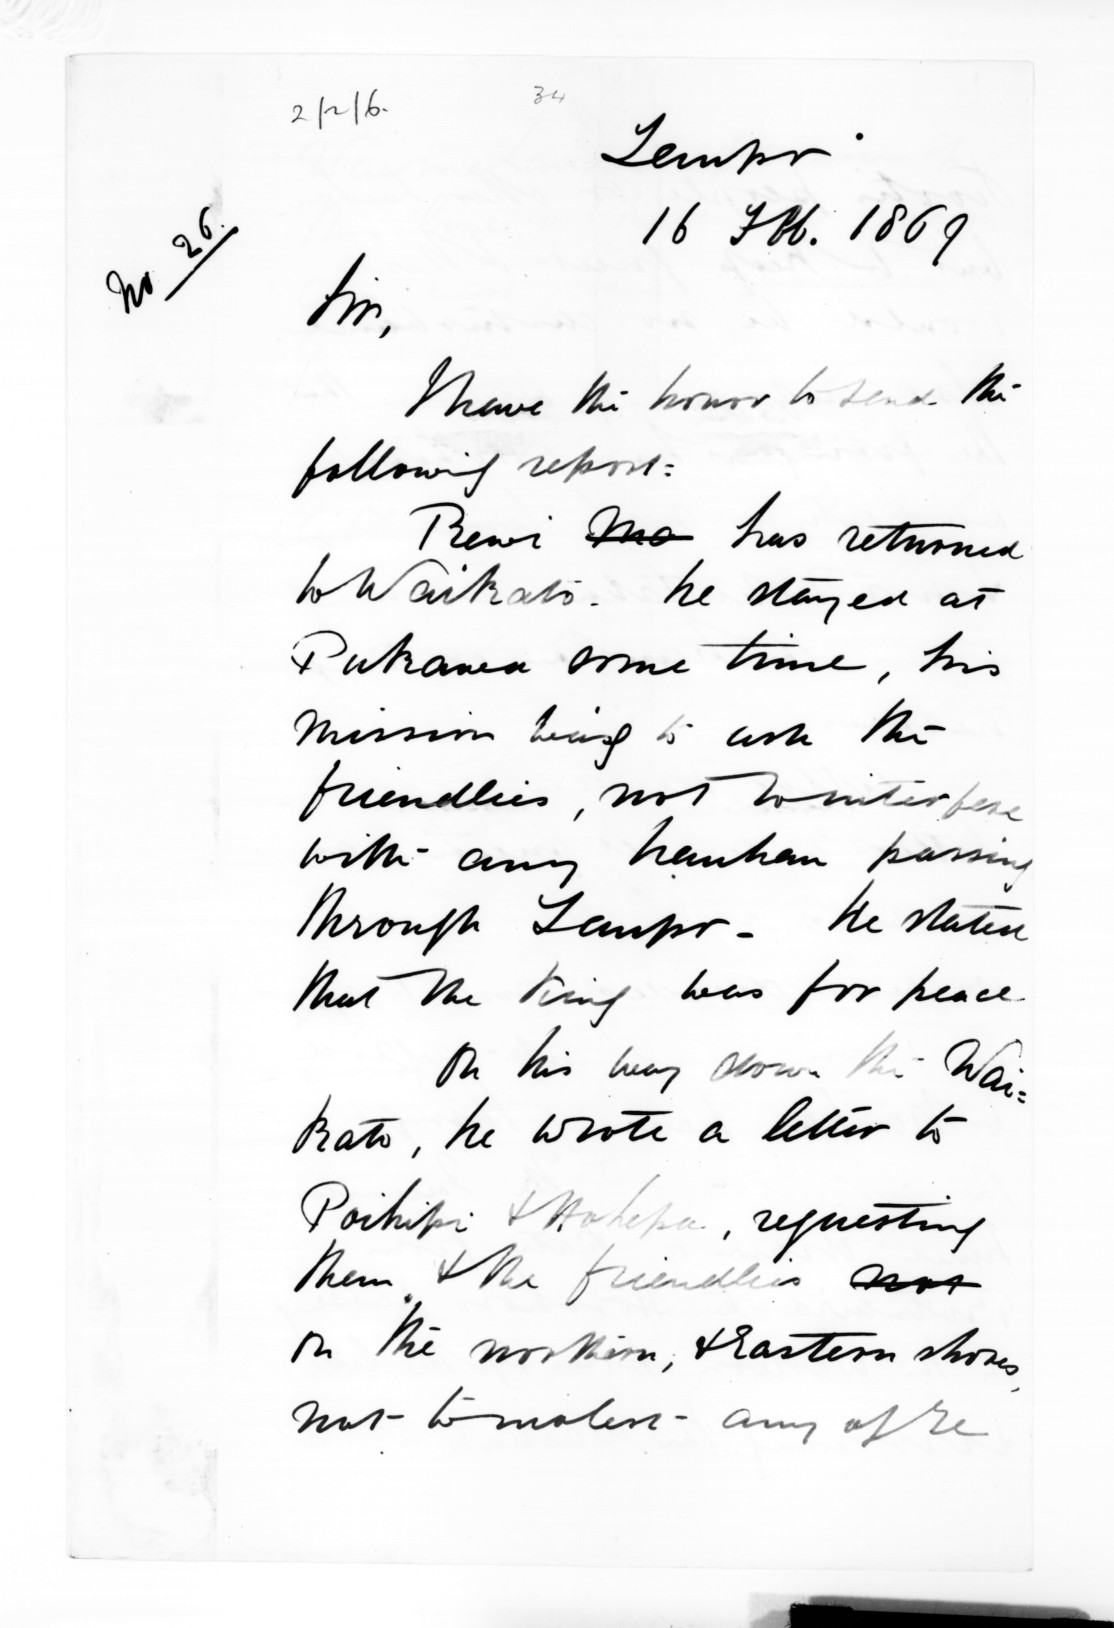 2/2/6.
34
Taupo
16 Feb. 1869
No. 26.
Sir,
I have the honor to send the
following report:
Rewi Ma has returned
to Waikato. he stayed at
Pukawa some time, his
mission being to ask the
friendlies, not to interfere
with any hauhau passing
through Taupo - he stated
that the King was for peace
On his way down the Wai=
kato, he wrote a letter to
Poihipi & Hohepa, requesting
them & the friendlies not
on the northern, & Eastern shores,
not to molest any of Te